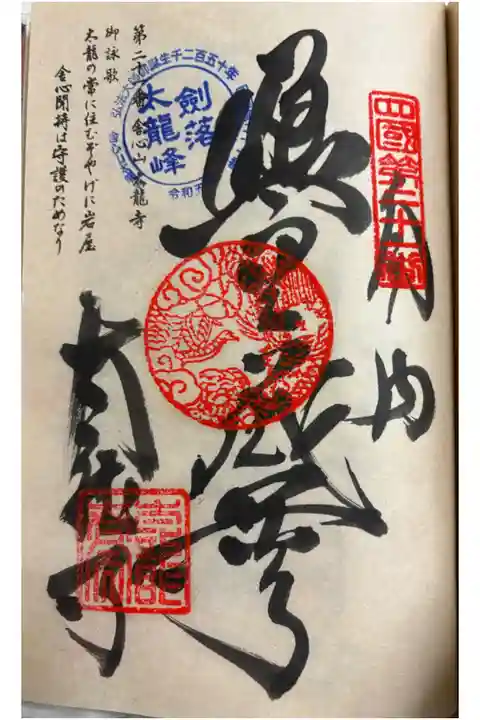 四國第二十一番
奉納
虚空蔵尊
太龍寺
弘法大師御誕生千二百五十年
劍落
太龍峰
令和五
第二十一番 舍心山 太龍寺
御詠歌
太龍の常に住むぞやげに岩屋
舍心聞持は守護のためなり